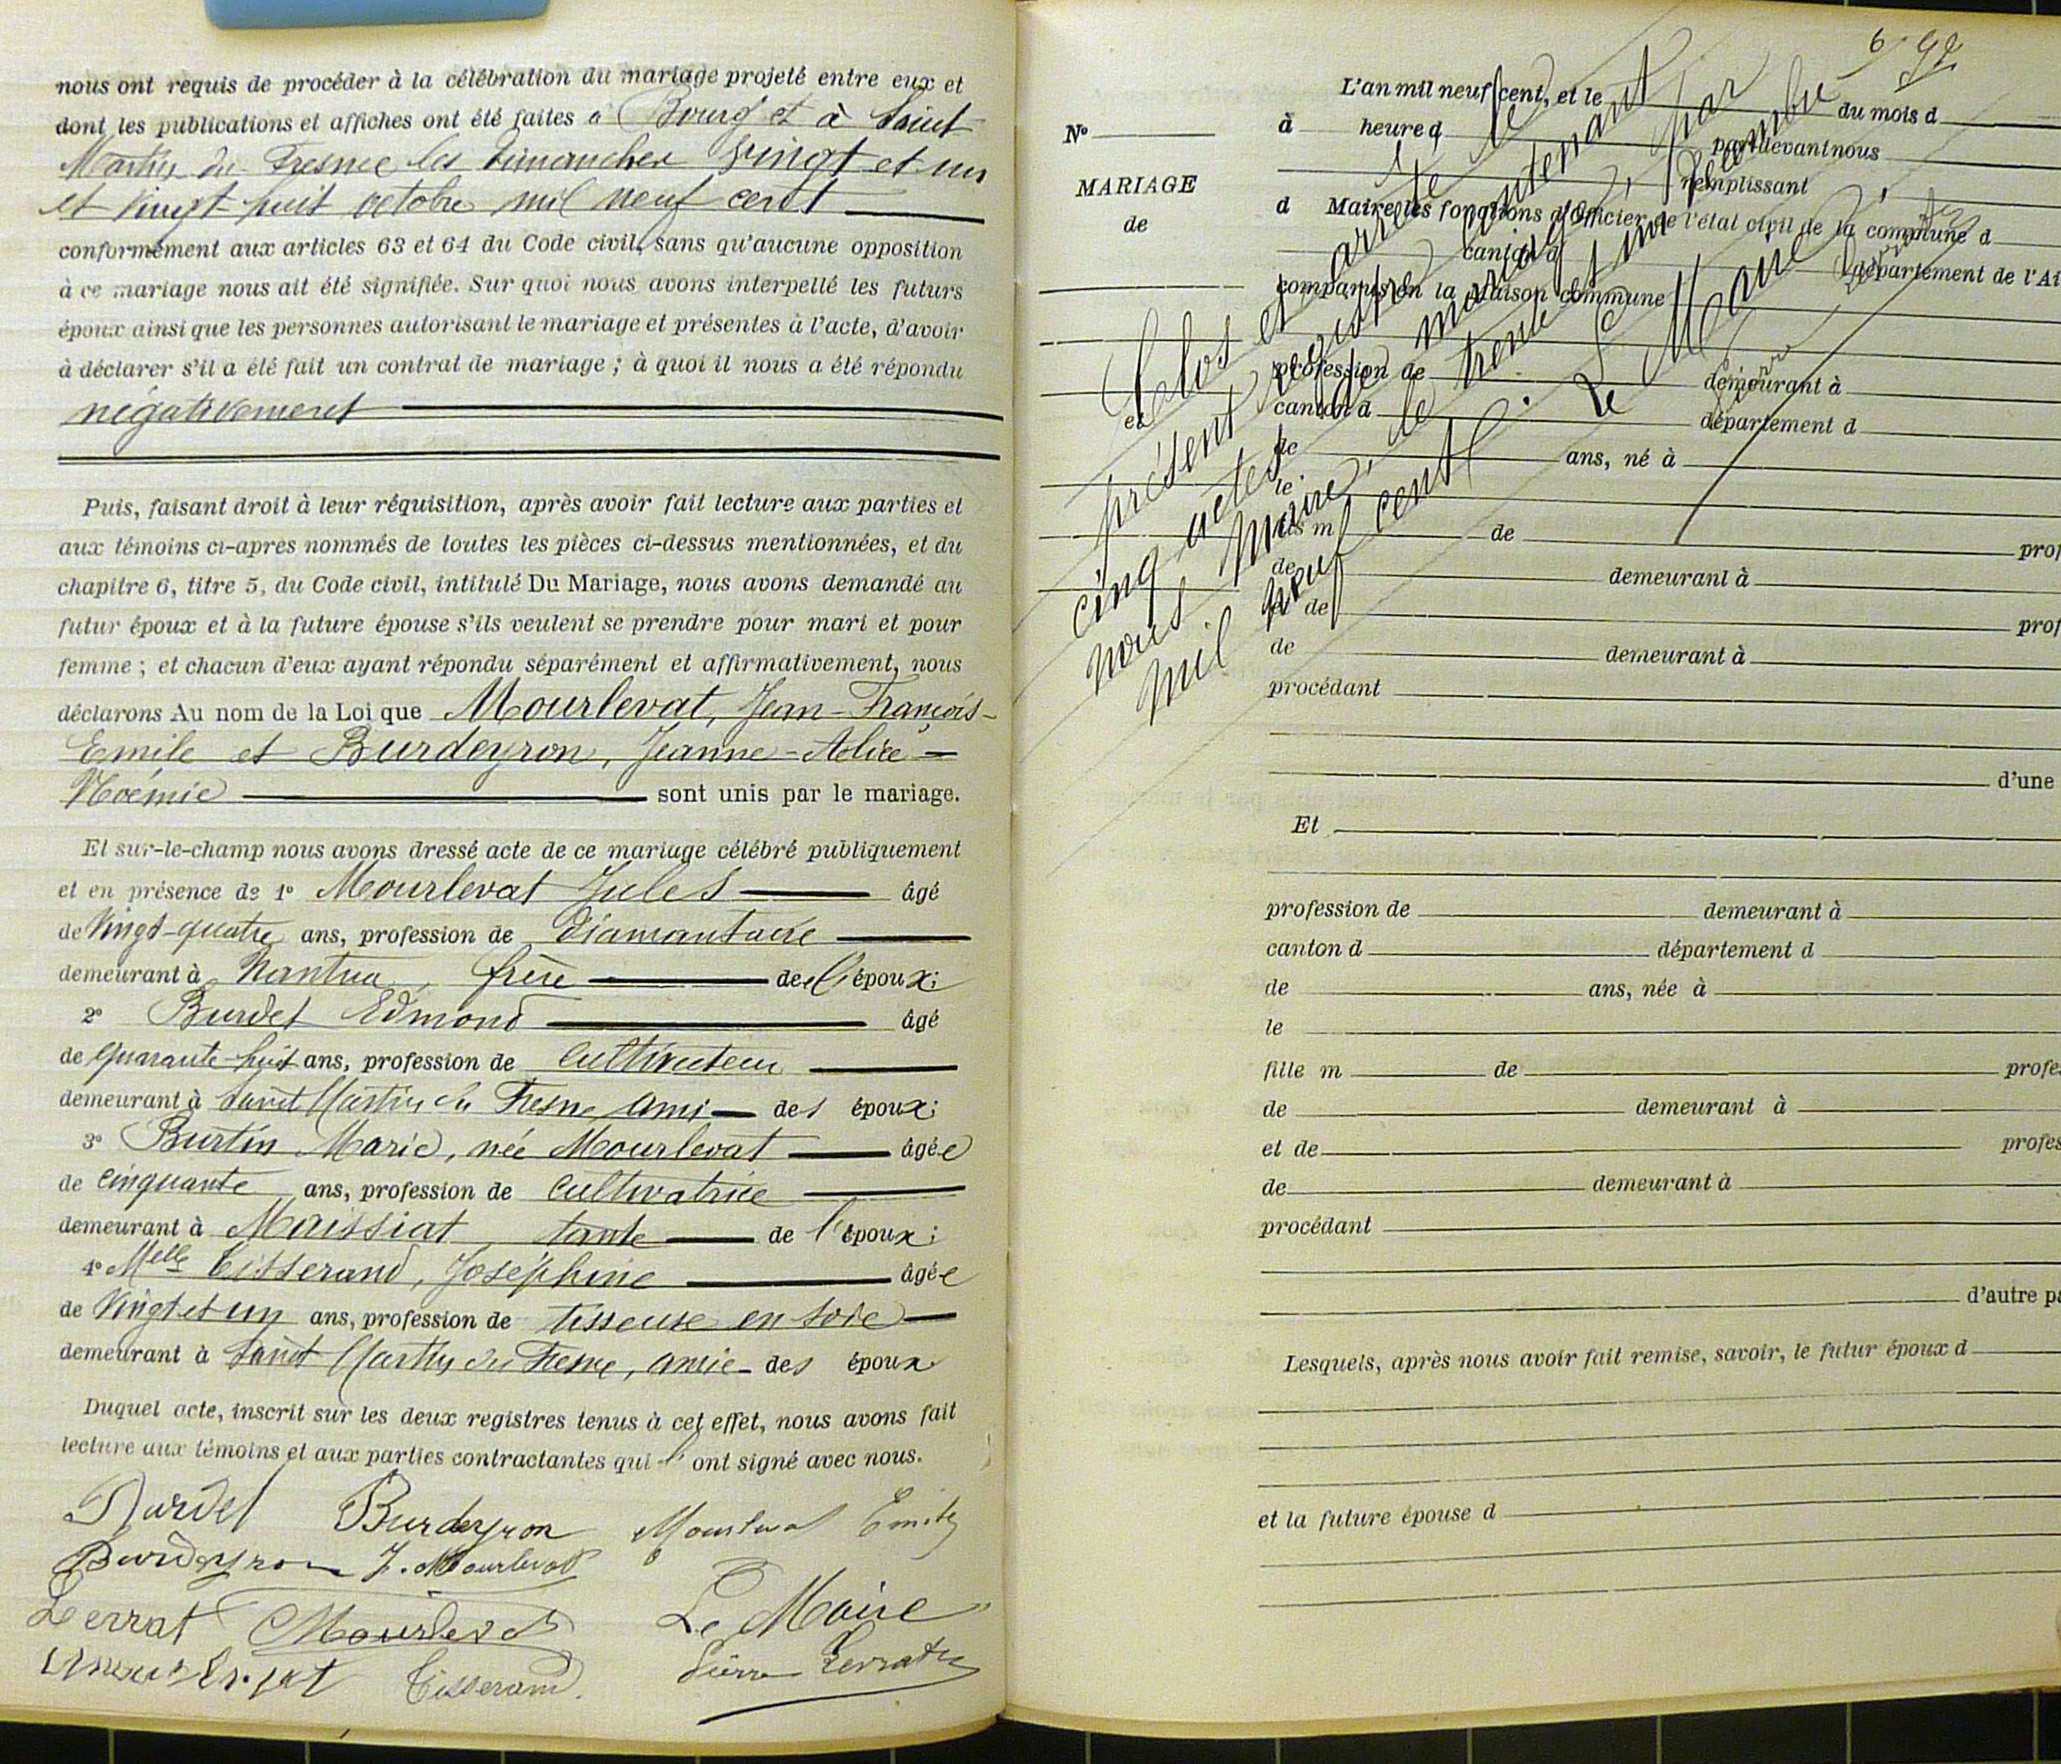 nous ont requis de procéder à la célébration du mariage projeté entre eux et
dont les publications et affiches ont été faites à Bourg et à Saint
Martin du Fresne les dimanches vingt et un
et vingt huit octobre mil neuf cent
conformément aux articles 63 et 64 du Code civil, sans qu'aucune opposition
à ce mariage nous ait été signifiée. Sur quoi nous avons interpellé les futurs
époux ainsi que les personnes autorisant le mariage et présentes à l'acte, d'avoir
à déclarer s'il a été fait un contrat de mariage ; à quoi il nous a été répondu
négativement
Puis, faisant droit à leur réquisition, après avoir fait lecture aux parties et
aux témoins ci-apres nommés de toutes les pièces ci-dessus mentionnées, et du
chapitre 6, titre 5, du Code civil, intitulé Du Mariage, nous avons demandé au
futur époux et à la future épouse s'ils veulent se prendre pour mari et pour
femme ; et chacun d'eux ayant répondu séparément et affirmativement, nous
déclarons Au nom de la Loi que Mourlevat, Jean-François-
Emile et Burdeyron, Jeanne-Alice-
Noémie sont unis par le mariage.
Et sur-le-champ nous avons dressé acte de ce mariage célébré publiquement
et en présence de 1° Mourlevat Jules âgé
de Vingt-quatre ans, profession de Diamantaire
demeurant à Nantua, frère de l'époux;
2° Burdet Edmond âgé
de quarante-huit ans, profession de cultivateur
demeurant à Saint Martin du Fresne ami des époux;
3° Burtin Marie, née Mourlevat âgée
de cinquante ans, profession de cultivatrice
demeurant à Maissiat, tante de l'époux;
4° Melle Tisserand, Joséphine âgée
de Vingt et un ans, profession de tisseuse en soie
demeurant à Saint Martin du Fresne, amie des époux
Duquel acte, inscrit sur les deux registres tenus à cet effet, nous avons fait
lecture aux témoins et aux parties contractantes qui l'ont signé avec nous.
Burdet Burdeyron Mourlevat Emile
Burdeyron J. Mourlevat
Zerrat Mourlevat Le Maire
Tisserand Pierre Zerrat
6 92
L'an mil neuf cent, et le du mois d
N° à heure d pardevant nous
MARIAGE remplissant
de d Maire les fonctions d'Officier de l'état civil de la commune d
canton d département de l'Ai
comparus en la Maison commune
profession de demeurant à
et canton d département d
de ans, né à
le
fils m de prof
de demeurant à
et de prof
de demeurant à
procédant
d'une
Clos et arrêté le
présent registre contenant
cinq actes de mariage, par
nous Maire, le trente et un décembre
mil neuf cent. Le Maire,
Et
profession de demeurant à
canton d département d
de ans, née à
le
fille m de profes
de demeurant à
et de profes
de demeurant à
procédant
d'autre pa
Lesquels, après nous avoir fait remise, savoir, le futur époux d
et la future épouse d